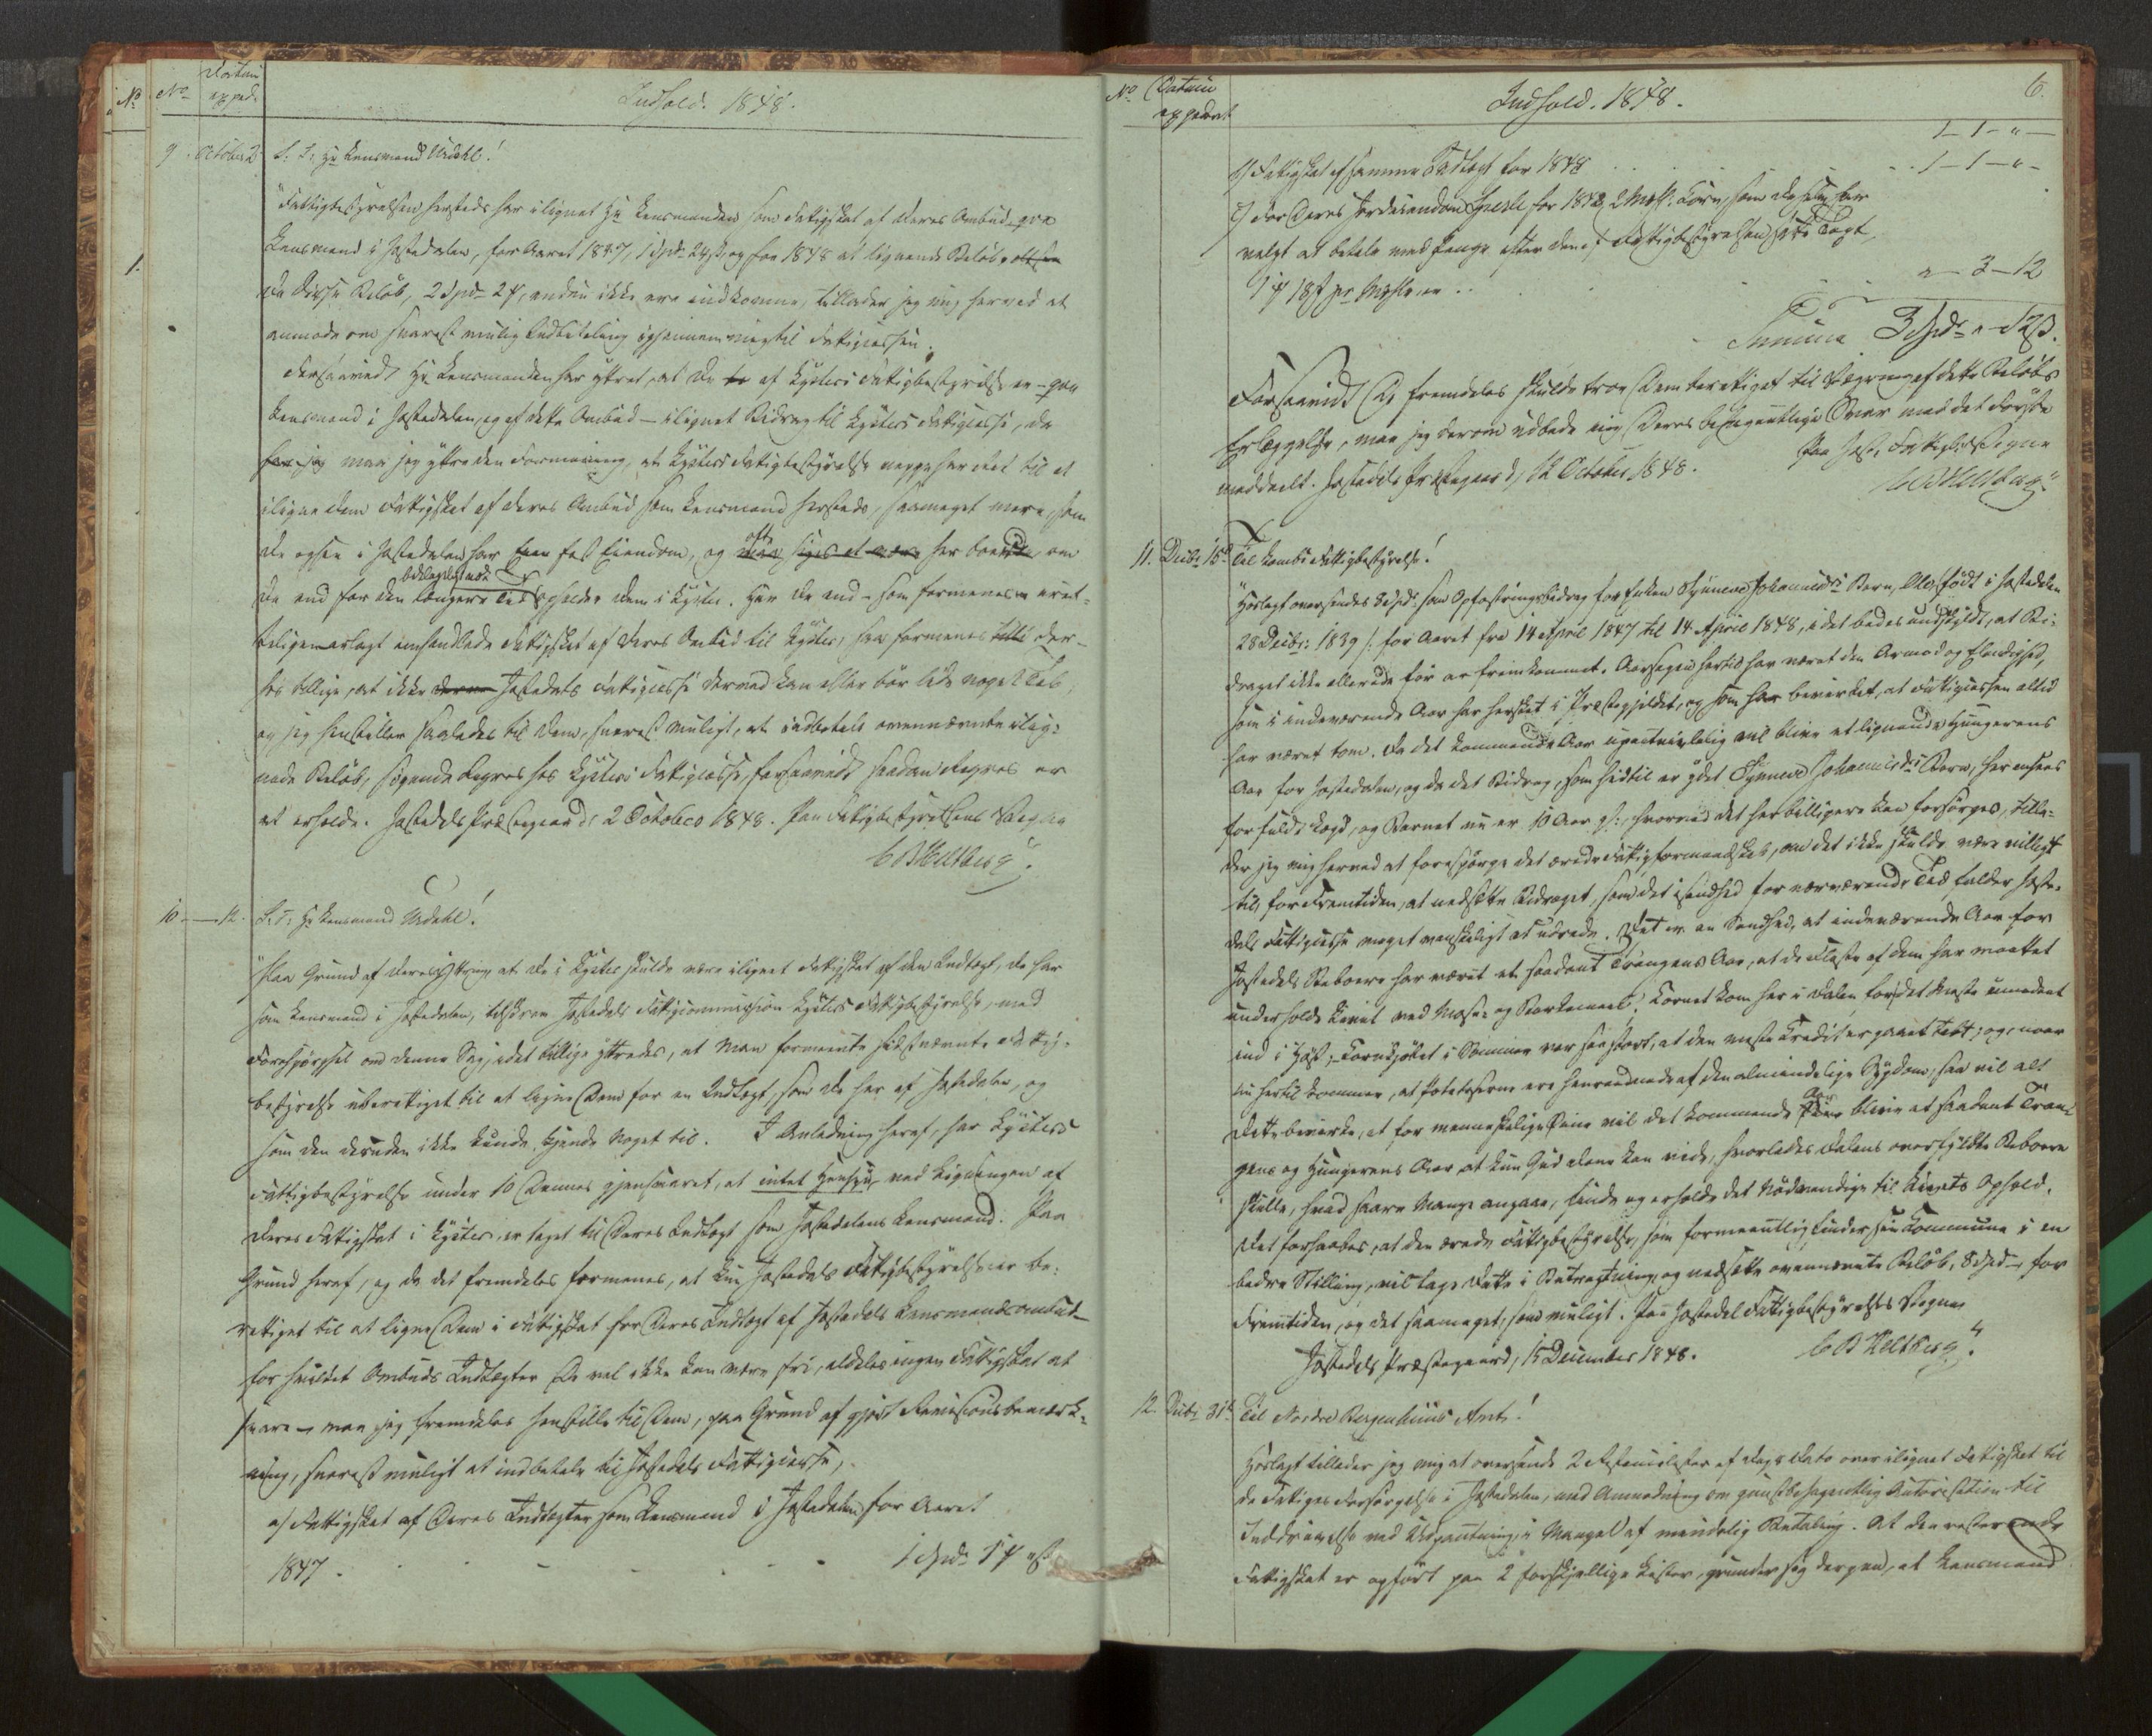 No
No
Datum
exped.
Indhold. 1848.
9. October 2.
S. T. Hr Lensmand Urdahl!
"Fattigbestyrelsen hersteds har ilignet Hr Lensmanden som Fattigskat af Deres Ombud qva
Lensmand i Jostedalen, for Aaret 1847, 1 Spd. 24 ß, og for 1848 et lignende Beløb,
1.
Da disse Beløb, 2 Spd. 2 #, endnu ikke ere indkomne, tillader jeg mig herved at
anmode om snarest mulig Indbetaling igjennem mig til Fattigcassen.
Forsaavidt Hr Lensmanden har yttret, at De af Lysters Fattigbestyrelse er – qva
Lensmand i Jostedalen, og af dette Ombud – ilignet Bidrag til Lysters Fattigcasse, da
maa jeg yttre den Formening, at Lysters Fattigbestyrelse neppe har Ret til at
iligne Dem Fattigskat af Deres Ombud som Lensmand hersteds, saameget mere, som
De ogsaa i Jostedalen har fast Eiendom, og ofte her boende, om
De end for den længere Tid opholder Dem i Lyster. Har De end – som formenes uret-
teligen – erlagt omhandlede Fattigskat af Deres Ombud til Lyster, saa formenes der-
hos tillige, at ikke Jostedals Fattigcasse derved kan eller bør lide noget Tab,
og jeg henstiller saaledes til Dem, snarest muligt, at indbetale ovennævnte ilig-
nede Beløb, søgende Regres hos Lysters Fattigcasse, forsaavidt saadan Regres er
at erholde. Jostedals Præstegaard, 2 October 1848. Paa Fattigbestyrelsens Vegne
C D Hellberg".
10 – — 12.
S. T. Hr Lensmand Urdahl!
"Paa Grund af Deres Yttring at De i Lyster skulde være ilignet Fattigskat af den Indtægt, De har
som Lensmand i Jostedalen, tilskrev Jostedals Fattigcommission Lysters Fattigbestyrelse, med
Forespørgsel om denne Sag, idet tillige yttredes, at Man formeente sidstnævnte Fattig-
bestyrelse uberettiget til at ligne Dem for en Indtægt, som De har af Jostedalen, og
som den desuden ikke kunde kjende Noget til. I Anledning heraf, har Lysters
Fattigbestyrelse under 10 Dennes gjensvaret, at intet Hensyn, ved Ligningen af
Deres Fattigskat i Lyster, er taget til Deres Indtægt som Jostedalens Lensmand. Paa
Grund heraf, og da det fremdeles formenes, at kun Jostedals Fattigbestyrelse er be-
rettiget til at ligne Dem i Fattigskat for Deres Indtægt af Jostedals Lensmandsombud –
for hvilket Ombuds Indtægter De vel ikke kan være fri, aldeles ingen Fattigskat at
svare – maa jeg fremdeles henstille til Dem, paa Grund af gjort Revisionsbemærk-
ning, snarest muligt at indbetale til Jostedals Fattigcasse,
a) Fattigskat af Deres Indtægter som Lensmand i Jostedalen for Aaret
1847 . . . . 1 Spd. 1 # " ß
No
Datum
expederet
Indhold. 1848.
6.
1 – 1 – " –
b) Fattigskat af samme Indtægt for 1848 . . . 1 – 1 – " –
c) For Deres Jordeiendom for 1848, 2 Korn, som De selv har
valgt at betale med Penge efter den af Fattigbestyrelsen satte Taxt,
" – 3 – 12
Summa 3 Spd. " – 12 ß.
Forsaavidt De fremdeles skulde troe Dem berettiget til Vægring af dette Beløbs
Erlæggelse, maa jeg derom udbede mig Deres behagentlige Svar med det Første
meddeelt. Jostedals Præstegaard, 12 October 1848. Paa Jost. Fattigbest. Vegne
C D Hellberg"
11. Decbr 15d
Til Lyster Fattigbestyrelse!
"Hoslagt oversendes 8 Spd. som Opfostringsbidrag for Synneve Johannesds Barn, Ole, født i Jostedalen
28 Decbr: 1839 /: for Aaret fra 14 April 1847 til 14 April 1848, idet bedes undskyldt, at Bi-
draget ikke allerede før er fremkommet. Aarsagen hertil har været den Armod og Elendighed,
som i indeværende Aar har hersket i Præstegjeldet, og som har bevirket, at Fattigcassen altid
har været tom. Da det kommende Aar upaatvivlelig vil blive et lignende Hungerens
Aar for Jostedalen, og da det Bidrag, som hidtil er ydet Synneve Johannesds Barn, her ansees
for fuldt høyt, og Barnet nu er 10 Aar gl., hvorved det her billigere kan forsørges, tilla-
der jeg mig herved at forespørge det ærede Fattigformandskab, om det ikke skulde være villigt
til, for Fremtiden, at nedsætte Bidraget, som det isandhed for nærværende Tid falder Joste-
dals Fattigcasse meget vanskeligt at udrede. Det er en Sandhed, at indeværende Aar for
Jostedals Beboere har været et saadant Trangens Aar, at de Fleste af dem har maattet
underholde Livet ved Mose- og Barkemeel. Kornet kom her i Dalen for det Meste umodent
ind i Høst; Kornkjøbet i Sommer var saa stort, at den meste Credit er paaet tabt; og, naar
nu hertil kommer, at Poteterne ere henraadnede af den almindelige Sygdom, saa vil alt
dette bevirke, at for menneskelige Øine vil det kommende Aar blive et saadant Tran-
gens og Hungerens Aar, at kun Gud alene kan vide, hvorledes Dalens overfyldte Beboere
skulle, hvad saare Mange angaaer, finde og erholde det Nødvendige til Livets Ophold.
Det forhaabes, at den ærede Fattigbestyrelse, som formeentlig finder sin Commune i en
bedre Stilling, vil tage dette i Betragtning, og nedsætte ovennævnte Beløb, 8 Spd –, for
Fremtiden, og det saameget, som muligt. Paa Jostedal Fattigbestyrelses Vegne
Jostedals Præstegaard, 15 December 1848. C D Hellberg."
12. Decbr 31d
Til Nordre Bergenhuus Amt!
Hoslagt tillader jeg mig at oversende 2 Restancelister af Dags Dato over ilignet Fattigskat til
de Fattiges Forsørgelse i Jostedalen, med Anmodning om gunstbehagentlig Autorisation til
Inddrivelse ved Udpantning, i Mangel af mindelig Betaling. At den resterende
Fattigskat er opført paa 2 forskjellige Lister, grunder sig derpaa, at Lensmand